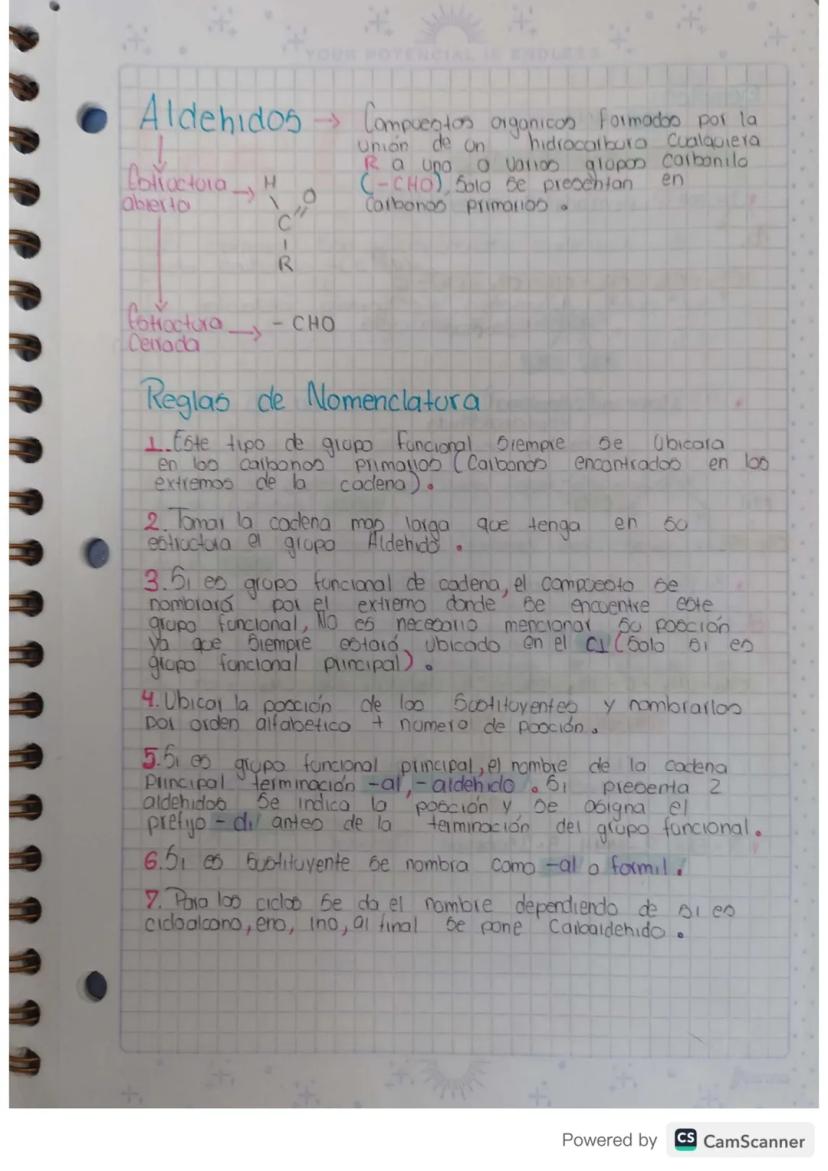 YOUR POTENCIAL IS ENDLESS
Aldehidos → Compuestos organicos formados por la
unión de un hidrocarburo cualquiera
R a uno o varios grupos carbonilo
(-CHO), Solo se presentan en
carbonos primarios.
Estructura abierta →
H
O
C
R
Estructura Cerrada → - CHO
Reglas de Nomenclatura
1. Este tipo de grupo funcional siempre se Ubicara
en los carbonos primarios (Carbonos encontrados en los
extremos de la cadena).
2. Tomar la cadena mas larga que tenga en su
estructura el grupo Aldehido.
3. Si es grupo funcional de cadena, el compuesto se
nombrará por el extremo donde se encuentre este
grupo funcional, No es necesario mencionar su posción
ya que siempre estará ubicado en el C1 (Solo si es
grupo funcional principal).
4. Ubicar la posción de los Sustituyentes y nombrarlos
por orden alfabetico + numero de posción.
5. Si es grupo funcional principal, el nombre de la cadena
Principal terminación -al, -aldehido. Si presenta 2
aldehidos Se indica la posción y se asigna el
prefijo - di antes de la terminación del grupo funcional.
6. Si es Sustituyente se nombra como -al o formil.
7. Para los ciclos Se da el nombre dependiendo de si es
cicloalcano, eno, ino, al final se pone Carbaldehido.
Powered by CS CamScanner